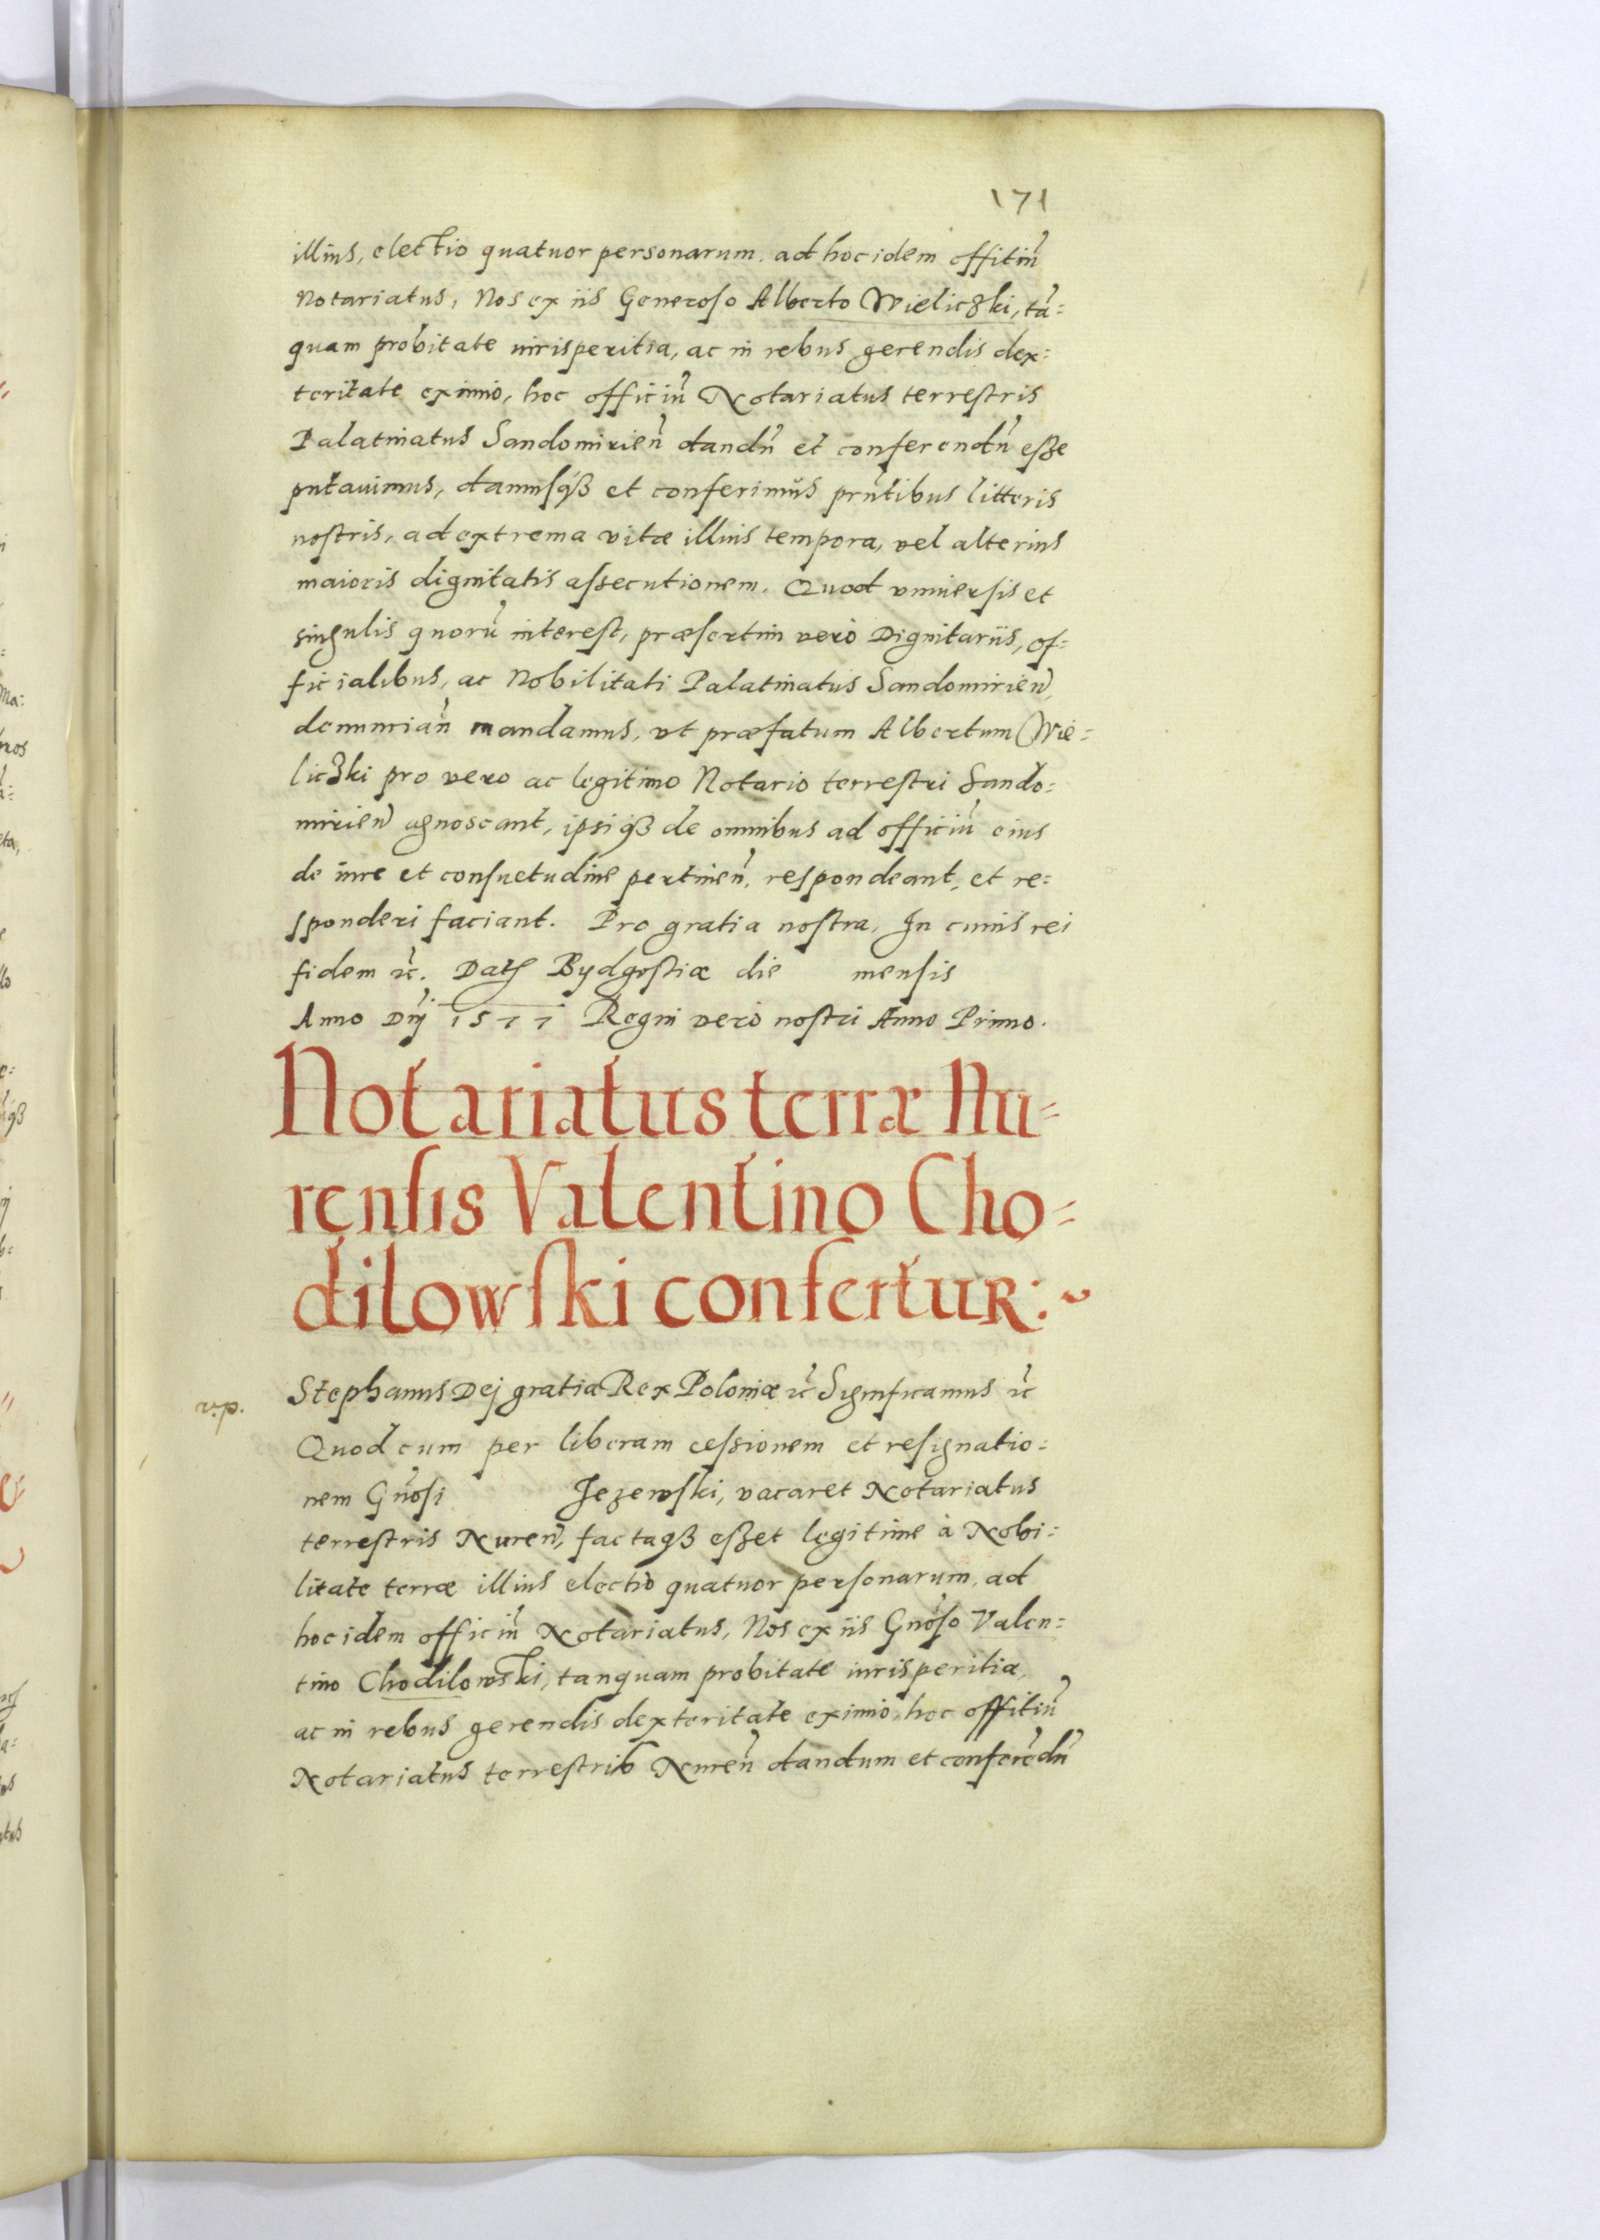 171
illius, electio quatuor personarum, ad hoc idem offitiũ
Notariatus, Nos ex iis Generoso Alberto Wieliczki, tã=
quam probitate iurisperitia, ac in rebus gerendis dex=
teritate eximio, hoc officiũ Notariatus terrestris
Palatinatus Sandomirień dandũ et conferendũ esße
putauimus, damusqß et conferimus pñtibus litteris
nostris, ad extrema vitæ illius tempora, vel alterius
maioris dignitatis assecutionem. Quod vniuersis et
singulis quorũ interest, præsertim verò Dignitariis, of=
ficialibus, ac Nobilitati Palatinatus Sandomirień,
denunciań mandamus, vt præfatum Albertum Wie=
liczki pro vero ac legitimo Notario terrestri Sando=
mirień agnoscant, ipsiqß de omnibus ad officiũ eius
de iure et consuetudine pertineń, respondeant, et re=
sponderi faciant. Pro gratia nostra, In cuius rei
fidem ꝛc̃. Datʒ Bydgostiæ die mensis
Anno Dñj 1577 Regni verò nostri Anno Primo.
Notariatus terræ Nu=
rensis Valentino Cho=
dilowski confertur:~
v.p.
Stephanus Dej gratia Rex Poloniæ ꝛc̃ Significamus ꝛc̃
Quod cum per liberam cessionem et resignatio=
nem Gñosi Jezewski, vacaret Notariatus
terrestris Nureń, factaqß esßet legitime à Nobi=
litate terræ illius electio quatuor personarum, ad
hoc idem officiũ Notariatus, Nos ex iis Gñoso Valen=
tino Chodilowski, tanquam probitate iurisperitia,
ac in rebus gerendis dexteritate eximio, hoc offitiũ
Notariatus terrestris Nureń dandum et conferẽdũ